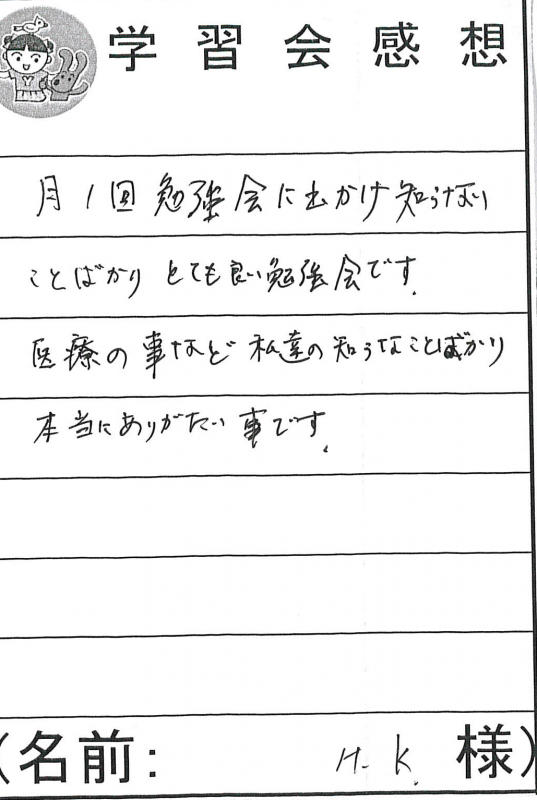 学習会感想
月1回勉強会に出かけ知らない
ことばかりとても良い勉強会です.
医療の事など私達の知らなことばかり
本当にありがたい事です.
(名前: H.K. 様)